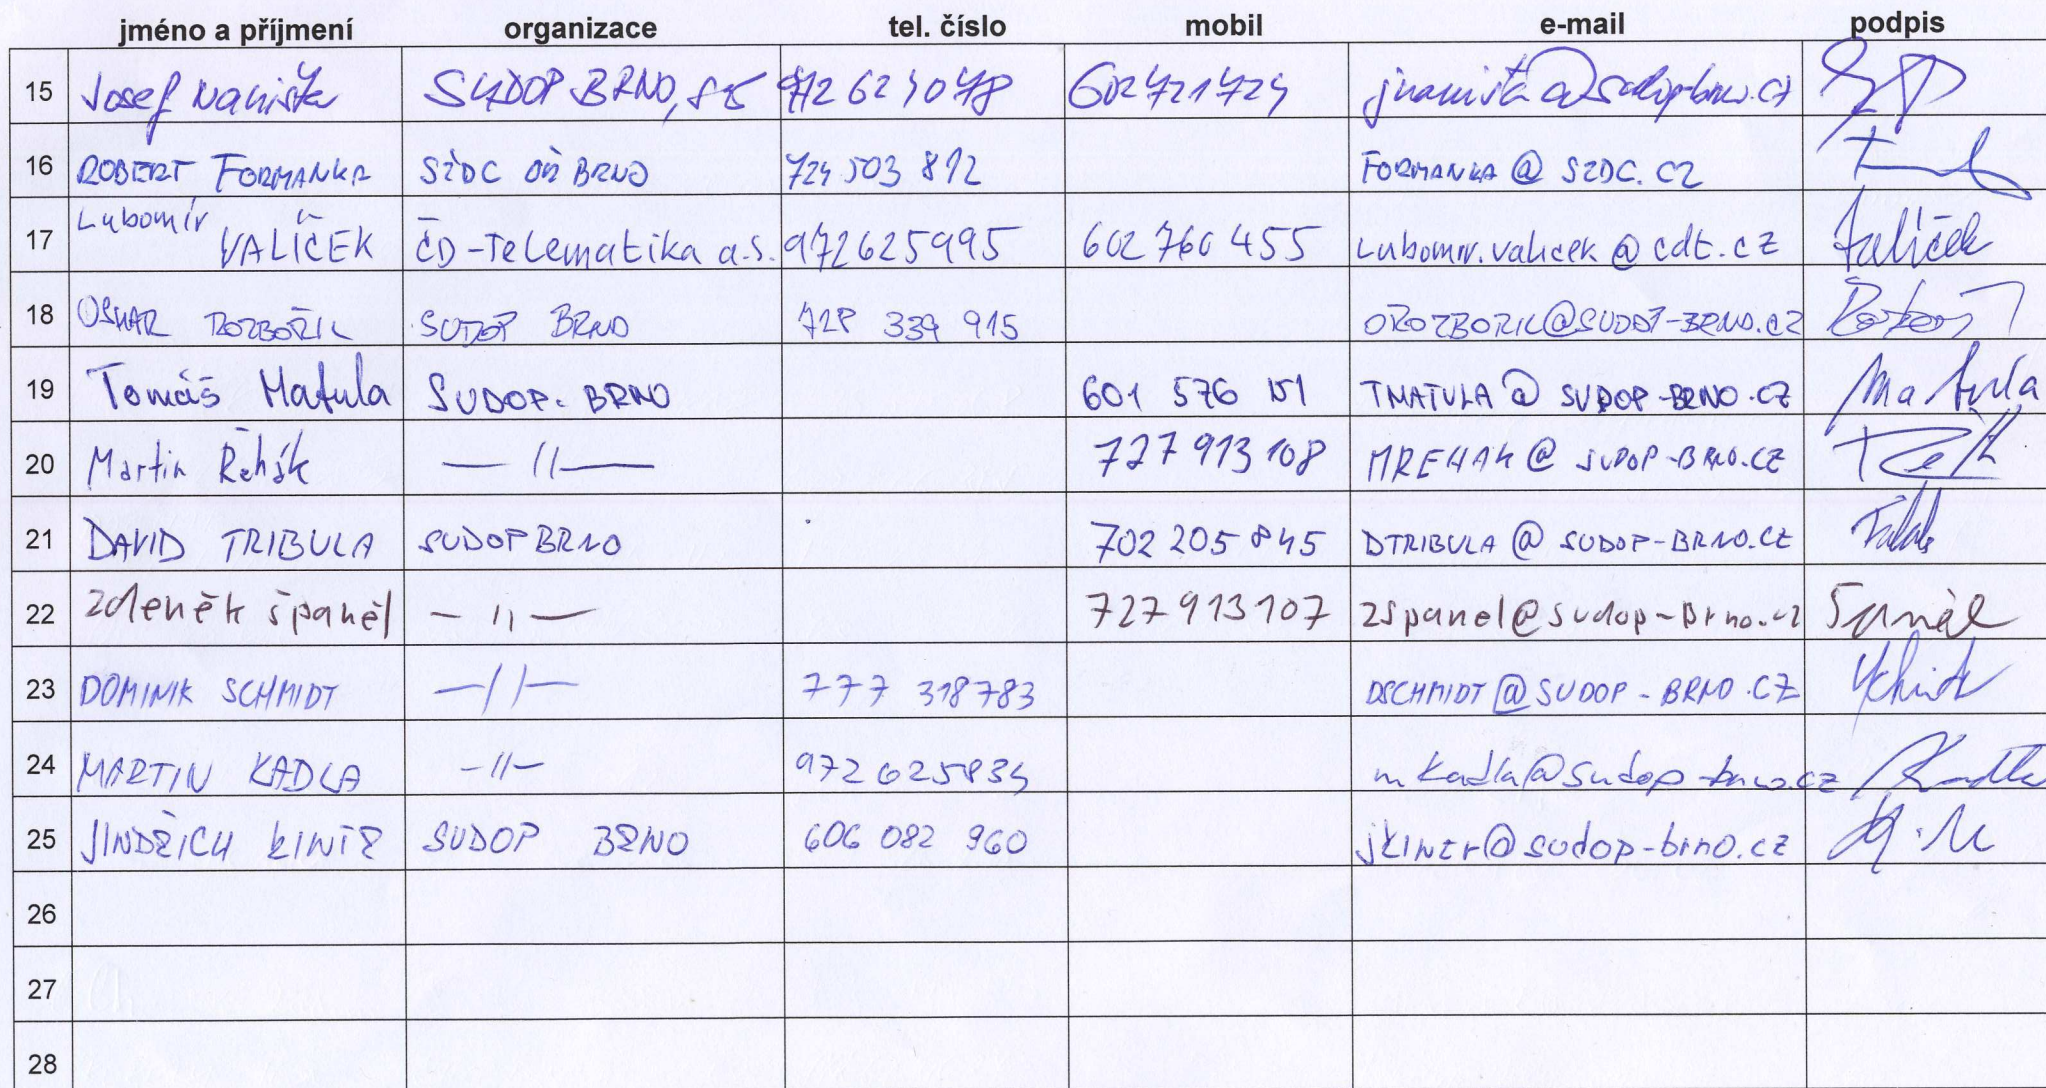 jméno a příjmení organizace tel. číslo mobil e-mail podpis
15 Josef SUDOP BRNO,
16 ROBERT FORMANKA SŽDC BRNO 724 503 812 FORMANKA @ SZDC.CZ
17 Lubomír VALÍČEK ČD-Telematika a.s. 972625995 602 760 455 Lubomir.valicek @ cdt.cz Valíček
18 OSKAR ROZBOŘIL SUDOP BRNO 728 339 915 OROZBORIL@SUDOP-BRNO.CZ
19 Tomáš Matula SUDOP-BRNO 601 576 151 TMATULA @ SUDOP-BRNO.CZ Matula
20 Martin Řehák — 11 — 727 913 108 MREHAK @ SUDOP-BRNO.CZ
21 DAVID TRIBULA SUDOP BRNO 702 205 845 DTRIBULA @ SUDOP-BRNO.CZ
22 Zdeněk Španěl — 11 — 727 913 107 zspanel@sudop-brno.cz Španěl
23 DOMINIK SCHMIDT — 11 — 777 318783 DSCHMIDT@SUDOP-BRNO.CZ
24 MARTIN KADLA — 11 — 972625834 mkadla@sudop-brno.cz
25 JINDŘICH KINTR SUDOP BRNO 606 082 960 jKINTr@sudop-brno.cz
26
27
28